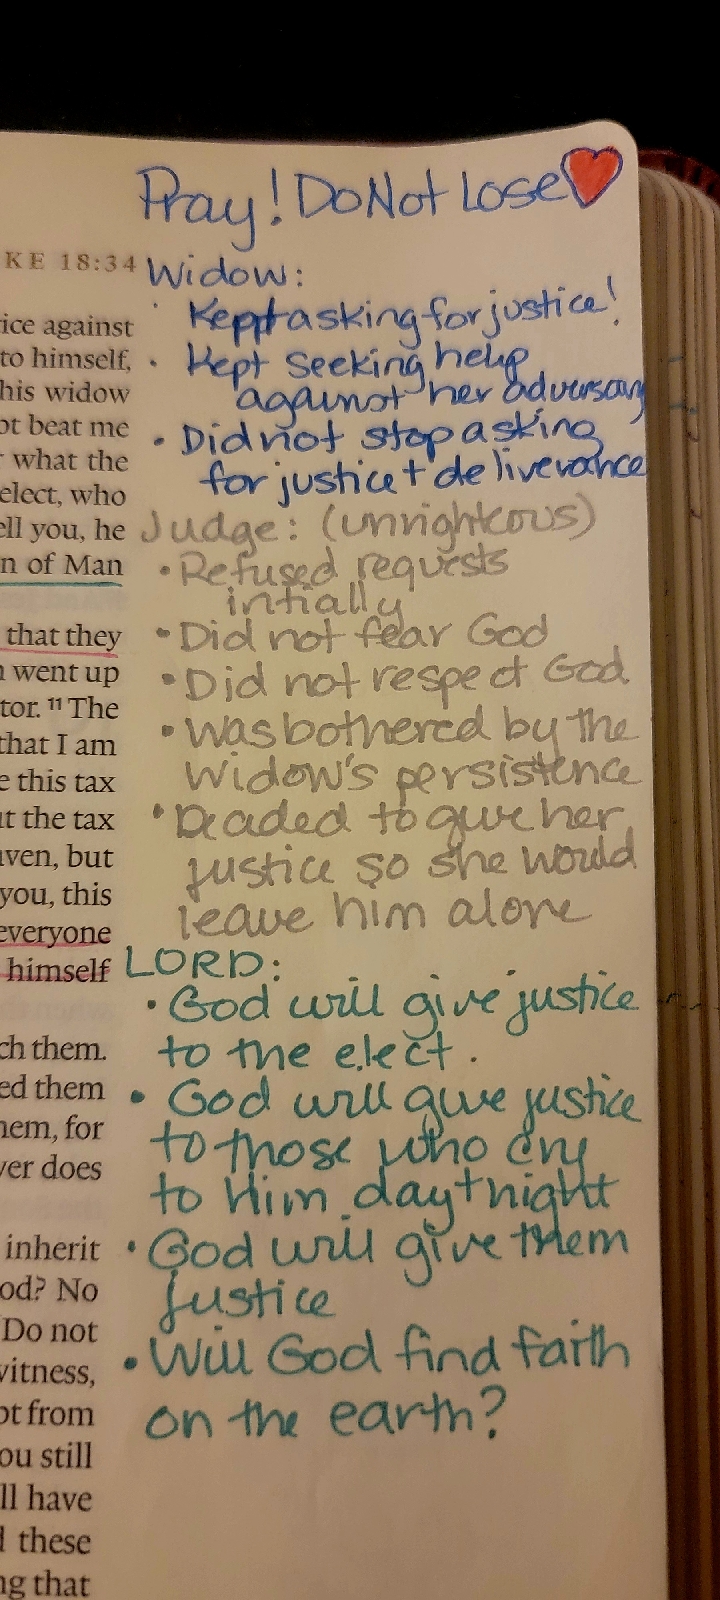 Pray! Do Not Lose ❤
KE 18:34
Widow:
· Keppt asking for justice!
· Kept seeking help
against her adversary
· Did not stop asking
for justice + deliverance
Judge: (unrighteous)
· Refused requests
intially
· Did not fear God
· Did not respect God
· Was bothered by the
widow's persistence
· Decided to give her
justice so she would
leave him alone
LORD:
· God will give justice
to the elect.
· God will give justice
to those who cry
to Him day + night
· God will give them
justice
· Will God find faith
on the earth?
ice against
to himself,
his widow
ot beat me
what the
elect, who
ell you, he
n of Man
that they
n went up
tor. 11 The
that I am
e this tax
ut the tax
aven, but
you, this
everyone
himself
ch them.
ed them
hem, for
ver does
inherit
od? No
Do not
witness,
ot from
ou still
ll have
d these
ng that